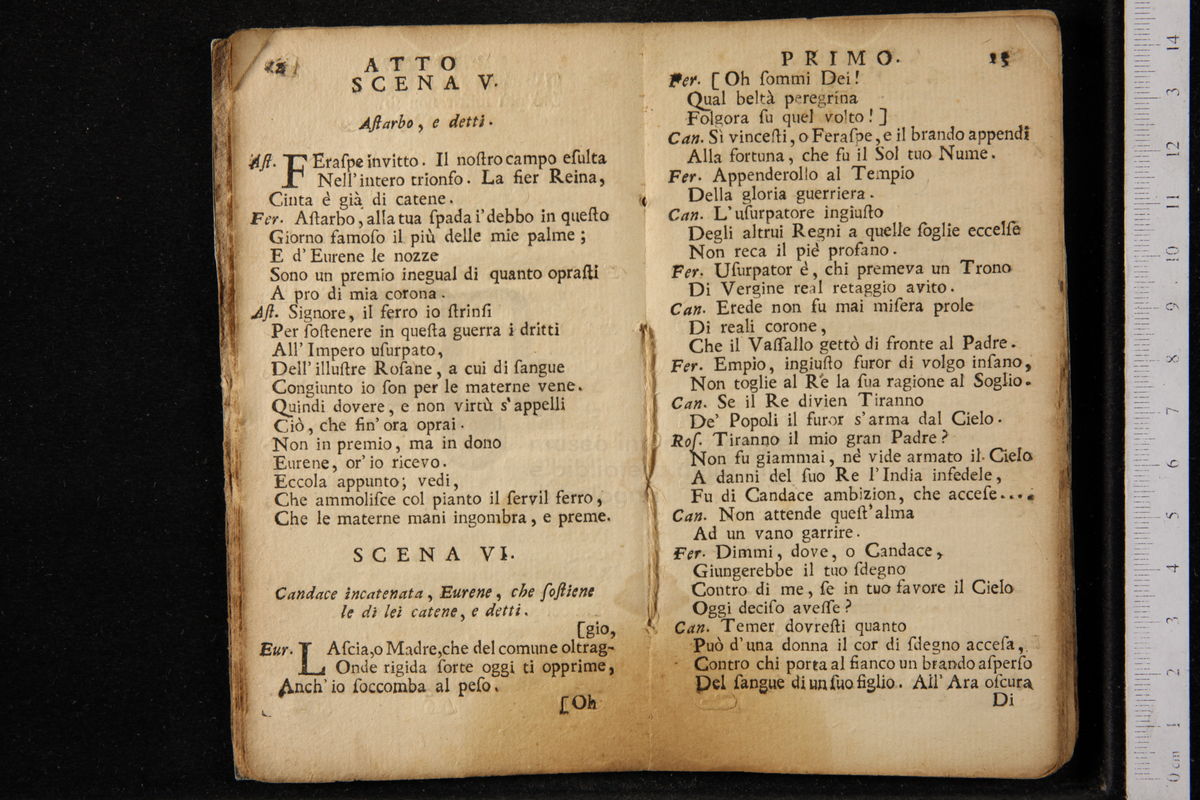 ATTO
SCENA V.
Aſtarbo, e detti.
Aſt. FEraſpe invitto. Il noſtro campo eſulta
Nell'intero trionfo. La fier Reina,
Cinta è già di catene.
Fer. Aſtarbo, alla tua ſpada i' debbo in queſto
Giorno famoſo il più delle mie palme;
E d'Eurene le nozze
Sono un premio inegual di quanto opraſti
A pro di mia corona.
Aſt. Signore, il ferro io ſtrinſi
Per ſoſtenere in queſta guerra i dritti
All'Impero uſurpato,
Dell'illuſtre Roſane, a cui di ſangue
Congiunto io ſon per le materne vene.
Quindi dovere, e non virtù s'appelli
Ciò, che fin'ora oprai.
Non in premio, ma in dono
Eurene, or'io ricevo.
Eccola appunto; vedi,
Che ammoliſce col pianto il ſervil ferro,
Che le materne mani ingombra, e preme.
SCENA VI.
Candace incatenata, Eurene, che ſoſtiene
le di lei catene, e detti.
[gio,
Eur. LAſcia,o Madre,che del comune oltrag-
Onde rigida ſorte oggi ti opprime,
Anch'io ſoccomba al peſo.
[Oh
PRIMO. 15
Fer. [Oh ſommi Dei!
Qual beltà peregrina
Folgora ſu quel volto!]
Can. Sì vinceſti, o Feraſpe, e il brando appendi
Alla fortuna, che fu il Sol tuo Nume.
Fer. Appenderollo al Tempio
Della gloria guerriera.
Can. L'uſurpatore ingiuſto
Degli altrui Regni a quelle ſoglie eccelſe
Non reca il piè profano.
Fer. Uſurpator è, chi premeva un Trono
Di Vergine real retaggio avito.
Can. Erede non fu mai miſera prole
Di reali corone,
Che il Vaſſallo gettò di fronte al Padre.
Fer. Empio, ingiuſto furor di volgo inſano,
Non toglie al Re la ſua ragione al Soglio.
Can. Se il Re divien Tiranno
De' Popoli il furor s'arma dal Cielo.
Roſ. Tiranno il mio gran Padre?
Non fu giammai, nè vide armato il Cielo
A danni del ſuo Re l'India infedele,
Fu di Candace ambizion, che acceſe....
Can. Non attende queſt'alma
Ad un vano garrire.
Fer. Dimmi, dove, o Candace,
Giungerebbe il tuo ſdegno
Contro di me, ſe in tuo favore il Cielo
Oggi deciſo aveſſe?
Can. Temer dovreſti quanto
Può d'una donna il cor di ſdegno acceſa,
Contro chi porta al fianco un brando aſperſo
Del ſangue di un ſuo figlio. All'Ara oſcura
Di